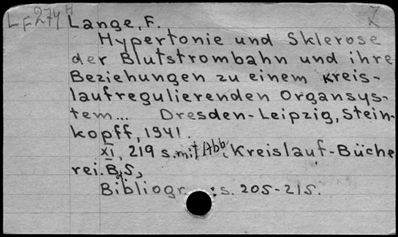 LF274H Lange, F. Z
Hypertonie und Sklerose
der Blutstrombahn und ihre
Beziehungen zu einem Kreis-
laufregulierenden Organsys-
tem... Dresden-Leipzig, Stein-
kopff, 1941.
XI, 219 s. mit Abb. Kreislauf-Büche
rei. Bd. 5,
Bibliogr. : s. 205-215.